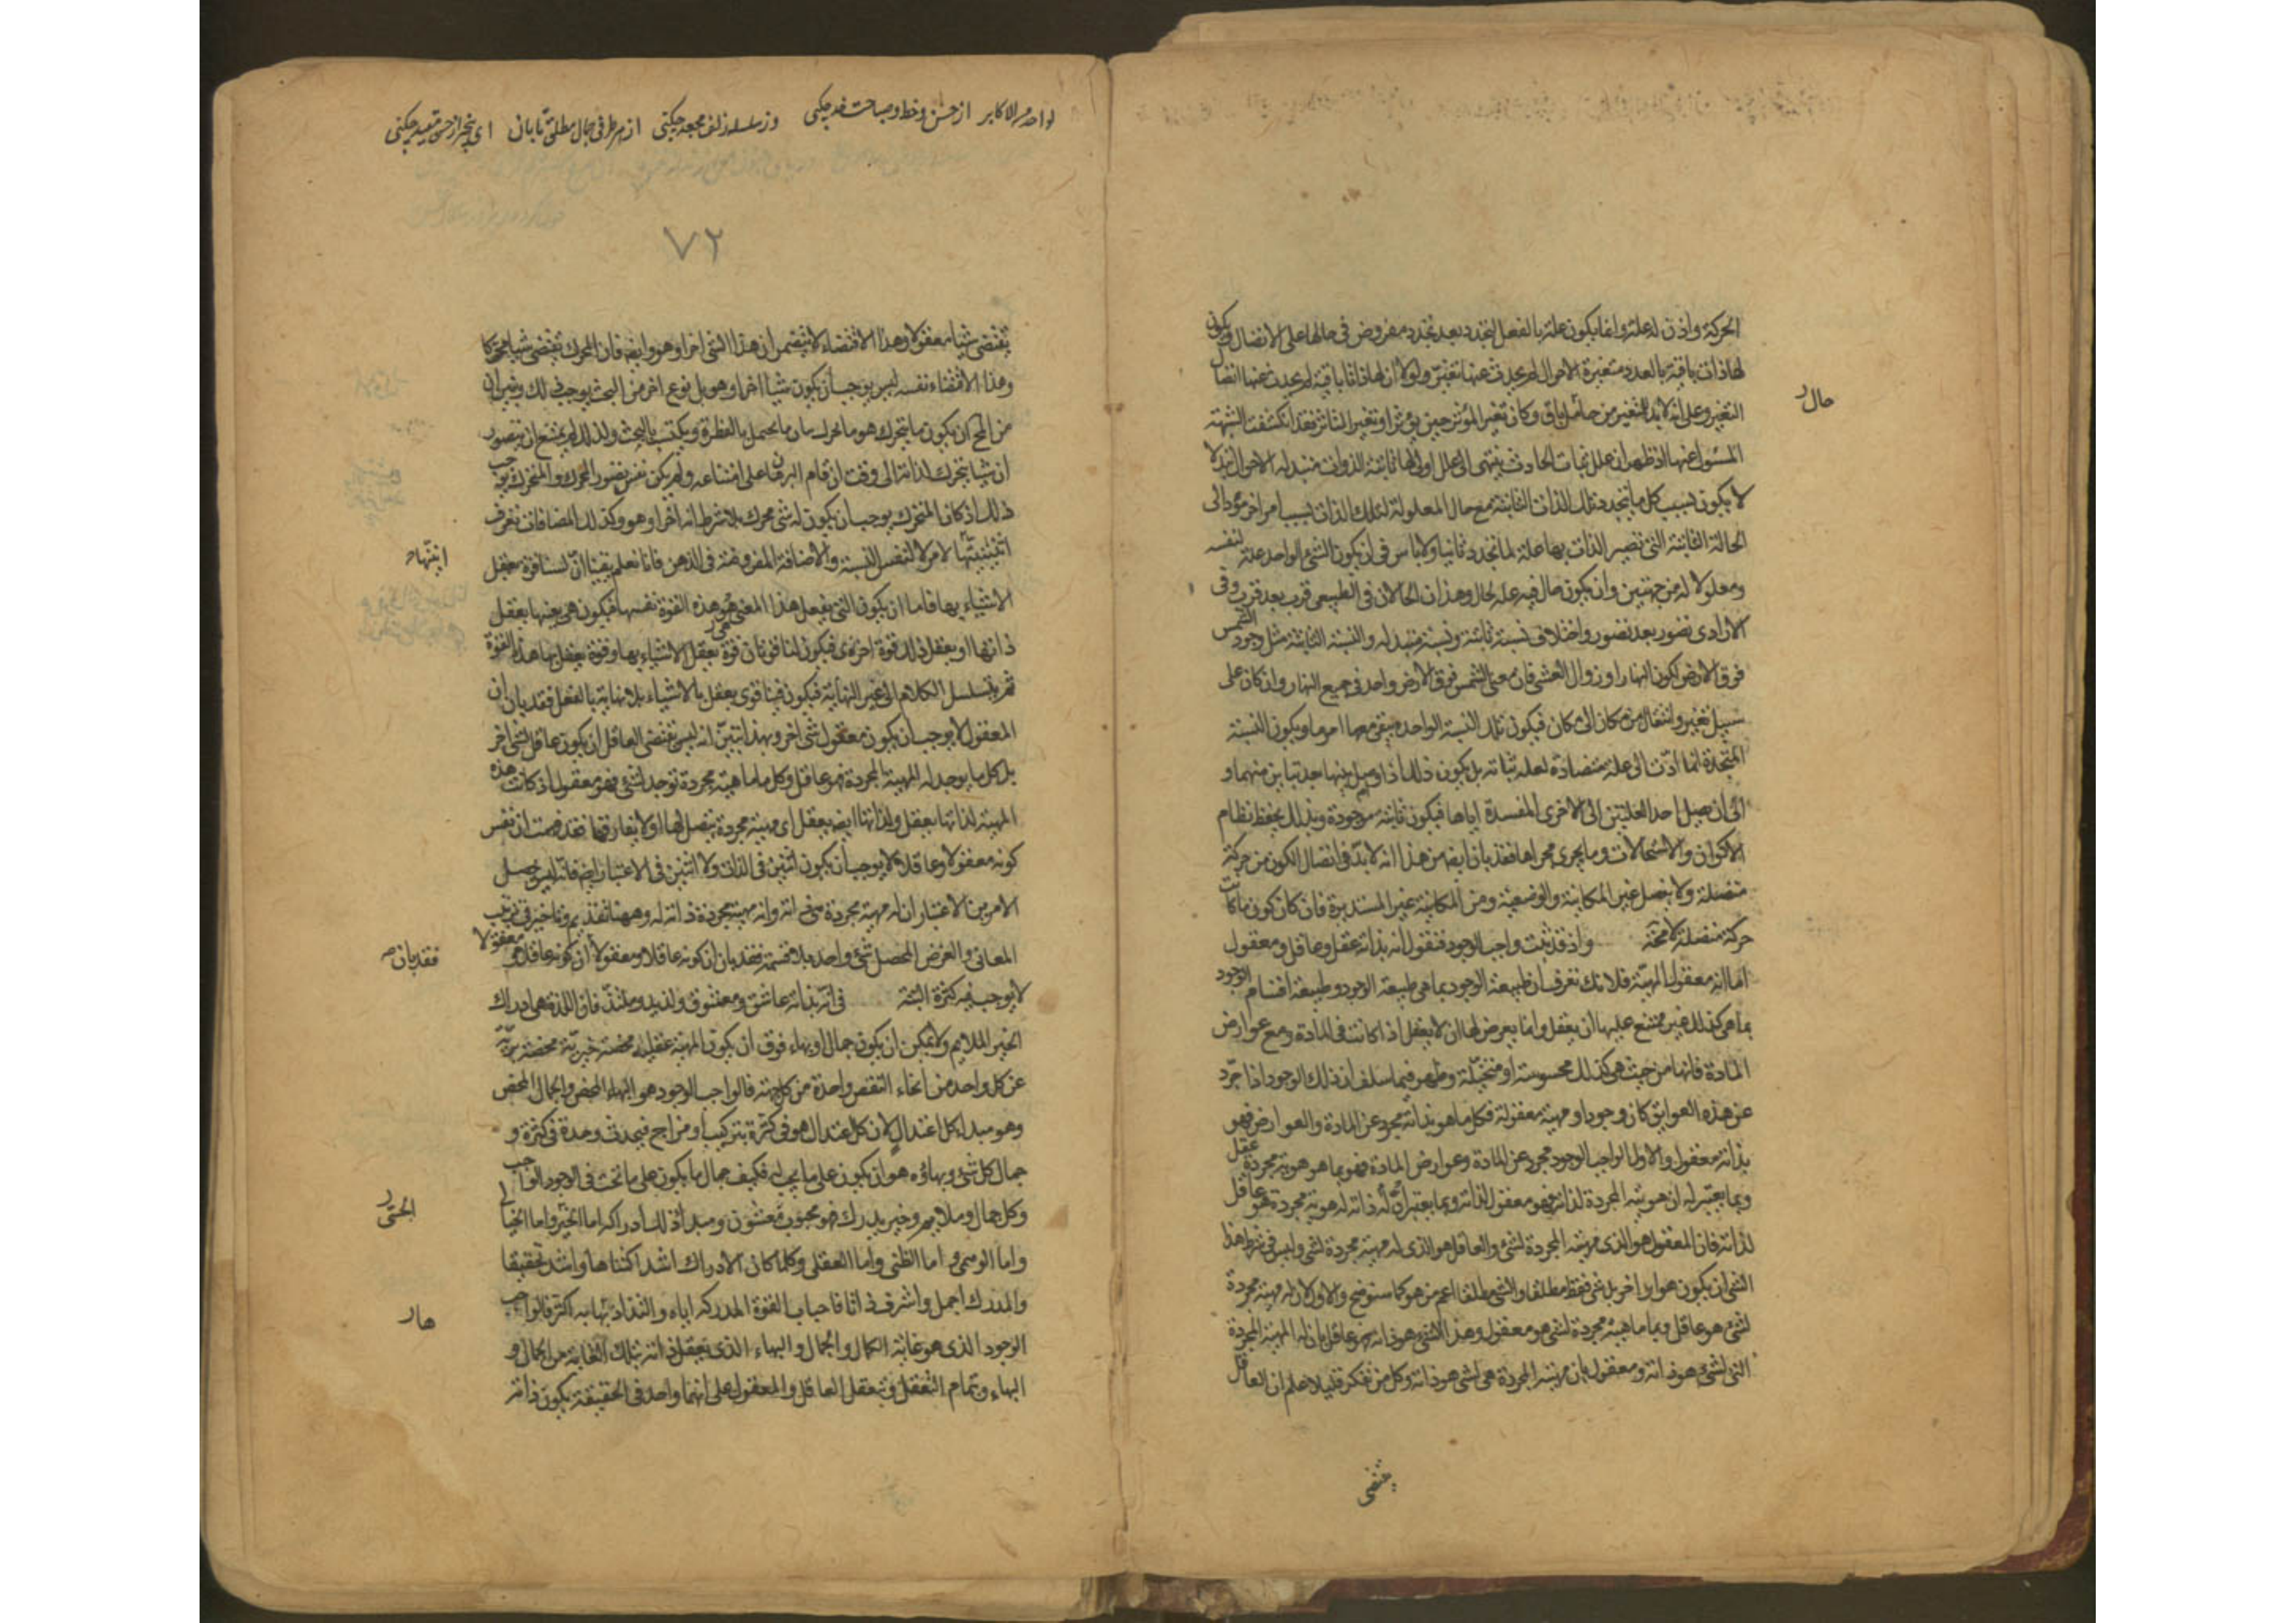 الحركة واذن له علة وانما يكون علة بالفعل لتجدد بعد تجدد مفروض في حالها على الاتصال فيكون
لها ذات باقية بالعدد متغيرة الاحوال لم يحدث عنها تغير ولولا ان لها ذاتا باقية لم يحدث عنها اتصال
التغير وعلى انه لا بد للتغير من حامل باق وكان تغير المؤثر حين يؤثر او تغير المتاثر فقد انكشفت الشبهة
المسئول عنها اذ ظهر ان علل ثبات الحادث ينتهي الى علل اولى لها ثابتة الذوات متبدلة الاحوال تبدلا
لا يكون بسبب كل ما يتجدد تلك الذات الثابتة مع حال المعلولة لتلك الذات بسبب امر اخر مؤد الى
الحالة الثابتة التي تصير الذات بها علة لما تجدد ثانيا ولا باس في ان يكون الشئ الواحد علة لنفسه
ومعلولا له من جهتين وان يكون حال فيه علة لحال وهذان الحالان في الطبيعي قرب بعد قرب وفي
الارادي تصور بعد تصور واختلاف نسبة ثابتة ونسبة متبدلة والنسبة الثابتة مثل وجود الشمس
فوق الارض لكون النهار او زوال العشى فان معنى الشمس فوق الارض واحد في جميع النهار وان كان على
سبيل تغير وانتقال من مكان الى مكان فيكون تلك النسبة الواحدة يبقى معها امر ما ويكون النسبة
المتجددة انما ادت الى علة متضادة لعلة ثباته بل يكون ذلك اذا وصل بينها حد تباين منهما و
الى ان يصل احد العلتين الى الاخرى المفسدة اياها فيكون ثابتة موجودة وبذلك يحفظ نظام
الاكوان والاستحالات وما يجرى مجراها فقد بان ايضا من هذا انه لا بد في اتصال الكون من حركة
متصلة ولا يتصل غير المكانية والوضعية ومن المكانية غير المستديرة فان كان كون ما كانت
حركة متصلة لا محة واذ قد ثبت واجب الوجود فنقول انه بذاته عقل وعاقل ومعقول
اما انه معقول المهية فلانك تعرف ان طبيعة الوجود بما هي طبيعة الوجود وطبيعة اقسام الوجود
بما هي كذلك غير ممتنع عليها ان يعقل وانما يعرض لها ان لا يعقل اذا كانت في المادة ومع عوارض
المادة فانها من حيث هي كذلك محسوسة او متخيلة وظهر فيما سلف ان ذلك الوجود اذا جرد
عن هذه العوايق كان وجودا ومهية معقولة فكل ما هو بذاته مجرد عن المادة والعوارض فهو
بذاته معقول والاول الواجب الوجود مجرد عن المادة وعوارض المادة فهو بما هو هوية مجردة عقل
وبما يعتبر له ان هويته المجردة لذاته فهو معقول لذاته وبما يعتبر ان له ذاته له هوية مجردة هو عاقل
لذاته فان المعقول هو الذى مهيته المجردة لشئ والعاقل هو الذى له مهية مجردة لشئ وليس في شرط هذا
الشئ ان يكون هو او اخر بل شئ فقط مطلقا والشئ مطلقا اعم من هو كما سنوضح والاول لان له مهية مجردة
لشئ هو عاقل وبما مهية مجردة لشئ هو معقول وهذا الشئ هو ذاته فهو عاقل بان له المهية المجردة
التي لشئ هو ذاته ومعقول بان مهيته المجردة هى لشئ هو ذاته وكل من تفكر قليلا علم ان العاقل
يقتضى
حال
از حسن وخط و صباحت خد چکنی
وز سلسله زلف مجعد چکنی
از هر طرفی جمال مطلق تابان
ای بیخبر از حسن مقید چکنی
۷۲
يقتضى شيئا معقولا وهذا الاقتضاء لا يتضمن ان هذا الشئ اخر او هو وايضا فان المحرك يقتضى شيئا متحركا
وهذا الاقتضاء نفسه ليس يوجب ان يكون شيئا اخر او هو بل نوع اخر من البحث يوجب ذلك ويبين ان
من المح ان يكون ما يتحرك هو ما يحرك ولذلك لم يمتنع ان يتصور
ان شيئا يتحرك لذاته الى وقت ان قام البرهان على امتناعه ولم يكن نفس تصور المحرك والمتحرك يوجب
ذلك اذ كان المتحرك يوجب ان يكون له شئ محرك بلا شرط انه اخر او هو وكذلك المضافات تعرف
اثنينيتها لامر لا لنفس النسبة والاضافة المفروضة في الذهن فانا نعلم يقينا ان لنا قوة نعقل
الاشياء بها فاما ان يكون التي يعقل هذا المعنى هو هذه القوة نفسها فيكون هى بعينها يعقل
ذاتها او يعقل ذلك قوة اخرى فيكون لنا قوتان قوة نعقل الاشياء بها وقوة نعقل بها هذه القوة
ثم يتسلسل الكلام الى غير النهاية فيكون فينا قوى يعقل بالاشياء بلا نهاية بالفعل فقد بان ان
المعقول لا يوجب ان يكون معقول شئ اخر وبهذا يتبين انه ليس يقتضى العاقل ان يكون عاقل شئ اخر
بل كل ما يوجد له المهية المجردة فهو عاقل وكل ما مهية مجردة توجد لشئ فهو معقول اذ كانت هذه
المهية لذاتها يعقل ولذاتها ايضا يعقل اى مهية مجردة يتصل بها او لا يفارقها فقد فهمت ان نفس
كونه معقولا وعاقلا لا يوجب ان يكون اثنين في الذات ولا اثنين في الاعتبار ايضا فانه ليس يحصل
الامرين الا اعتبار ان له مهية مجردة هى ذاته وانه مهية مجردة ذاته له وههنا تقديم وتاخير في ترتيب
المعانى والغرض المحصل شئ واحد بلا قسمة فقد بان ان كونه عاقلا ومعقولا ان كونه عاقلا معقولا
لا يوجب فيه كثرة البتة في انه بذاته عاشق ومعشوق ولذيذ وملتذ فان اللذة هى ادراك
الخير الملايم ولا يمكن ان يكون جمال او بهاء فوق ان يكون المهية عقلية محضة خيرية محضة برية
عن كل واحد من انحاء النقص واحدة من كل جهة فالواجب الوجود هو البهاء المحض والجمال المحض
وهو مبدا كل اعتدال لان كل اعتدال هو في كثرة بتركيب او مزاج فيحدث وحدة في كثرة و
جمال كل شئ وبهاؤه هو ان يكون على ما يجب له فكيف جمال ما يكون على ما يجب في الوجود الواجب
وكل جمال وملايم وخير يدرك فهو محبوب ومعشوق ومبدا ذلك ادراكه اما الحسى واما الخيالى
واما الوهمى واما الظنى واما العقلى وكلما كان الادراك اشد اكتناها واشد تحقيقا
والمدرك اجمل واشرف ذاتا فاحباب القوة المدركة اياه والتذاذها به اكثر فالواجب
الوجود الذى هو غاية الكمال والجمال والبهاء الذى يعقل ذاته بتلك الغاية من الجمال و
البهاء وبتمام التعقل وبتعقل العاقل والمعقول على انهما واحد في الحقيقة يكون ذاته
فقد بان
الحسى